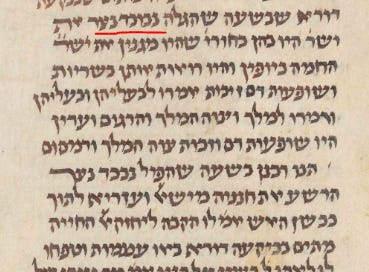 דורא שבשעה שהגלה נבוכד נצר את
ישר' היו בהן בחורי' שהיו מגנין את
החמה ביופין והיו רואות אותן כשדיות
ושופעות דם זיבות אמרו לבעליהן ובעליהן
אמרו למלך וצוה המלך והרגום ועדין
היו שופעות דם וזבות צוה המלך ורמסום
תנו רבנן בשעה שהפיל נבכד נצר
הרשע את חנניה מישאל ועזריא לתוך
כבשן האש אמ' לו הקבה ליחזקאל החייה
מתים בבקעת דורא באו עצמות וטפחו